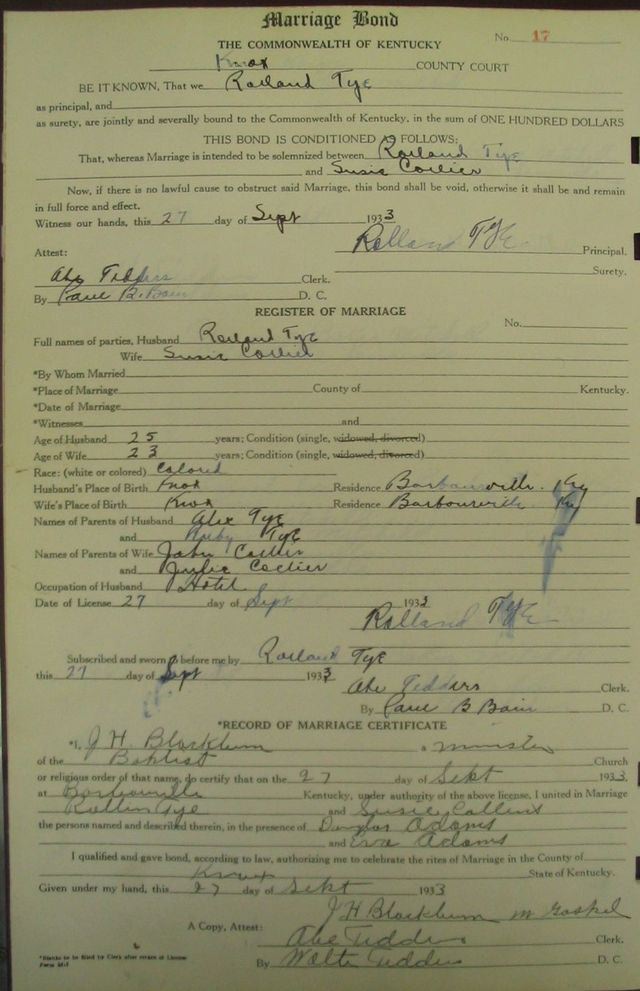 Marriage Bond
No. 17
THE COMMONWEALTH OF KENTUCKY
Knox COUNTY COURT
BE IT KNOWN, That we Rolland Tye
as principal, and
as surety, are jointly and severally bound to the Commonwealth of Kentucky, in the sum of ONE HUNDRED DOLLARS
THIS BOND IS CONDITIONED AS FOLLOWS:
That, whereas Marriage is intended to be solemnized between Rolland Tye
and Susie Collier
Now, if there is no lawful cause to obstruct said Marriage, this bond shall be void, otherwise it shall be and remain
in full force and effect.
Witness our hands, this 27 day of Sept 1933
Rolland Tye Principal.
Attest:
Surety.
Abe Tedders Clerk.
By Paul B. Bain D. C.
REGISTER OF MARRIAGE
No.
Full names of parties, Husband Rolland Tye
Wife Susie Collier
*By Whom Married
*Place of Marriage County of Kentucky.
*Date of Marriage
*Witnesses and
Age of Husband 25 years; Condition (single, widowed, divorced)
Age of Wife 23 years; Condition (single, widowed, divorced)
Race: (white or colored) Colored
Husband's Place of Birth Knox Residence Barbourville. Ky
Wife's Place of Birth Knox Residence Barbourville Ky
Names of Parents of Husband Alex Tye
and Ruby Tye
Names of Parents of Wife John Collier
and Julie Collier
Occupation of Husband Hotel
Date of License 27 day of Sept 1933
Rolland Tye
Subscribed and sworn to before me by Rolland Tye
this 27 day of Sept 1933
Abe Tedders Clerk.
By Paul B Bain D. C.
*RECORD OF MARRIAGE CERTIFICATE
*I, J H. Blackburn a minister
of the Baptist Church
or religious order of that name, do certify that on the 27 day of Sept 1933.
at Barbourville Kentucky, under authority of the above license, I united in Marriage
Rollin Tye and Susie Collins
the persons named and described therein, in the presence of Adams
and Eva Adams
I qualified and gave bond, according to law, authorizing me to celebrate the rites of Marriage in the County of
Knox State of Kentucky.
Given under my hand, this 27 day of Sept 1933
J H Blackburn M Gospel
A Copy, Attest:
Abe Tedders Clerk.
By Walter Tedders D. C.
*Blanks to be filled by Clerk after return of License